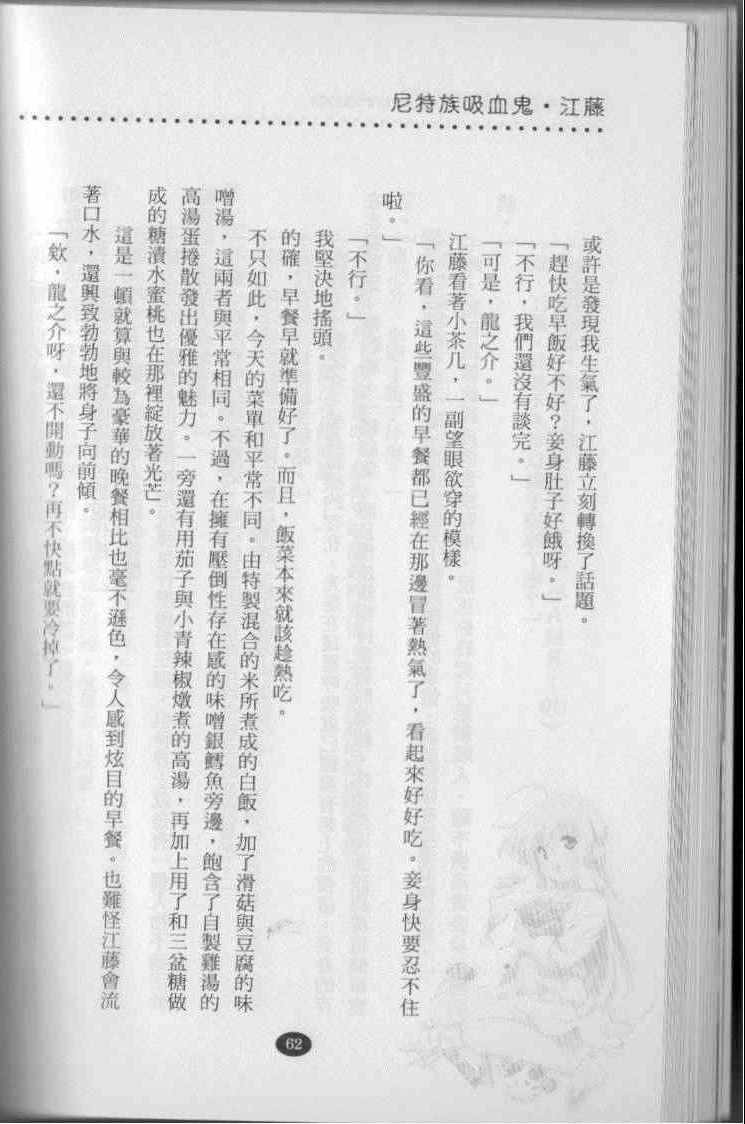 尼特族吸血鬼・江藤
或許是發現我生氣了，江藤立刻轉換了話題。
「趕快吃早飯好不好？妾身肚子好餓呀。」
「不行，我們還沒有談完。」
「可是，龍之介。」
江藤看著小茶几，一副望眼欲穿的模樣。
「你看，這些豐盛的早餐都已經在那邊冒著熱氣了，看起來好好吃。妾身快要忍不住
啦。」
「不行。」
我堅決地搖頭。
的確，早餐早就準備好了。而且，飯菜本來就該趁熱吃。
不只如此，今天的菜單和平常不同。由特製混合的米所煮成的白飯，加了滑菇與豆腐的味
噌湯，這兩者與平常相同。不過，在擁有壓倒性存在感的味噌銀鱈魚旁邊，飽含了自製雞湯的
高湯蛋捲散發出優雅的魅力。一旁還有用茄子與小青辣椒燉煮的高湯，再加上用了和三盆糖做
成的糖漬水蜜桃也在那裡綻放著光芒。
這是一頓就算與較為豪華的晚餐相比也毫不遜色，令人感到炫目的早餐。也難怪江藤會流
著口水，還興致勃勃地將身子向前傾。
「欸，龍之介呀，還不開動嗎？再不快點就要冷掉了。」
62